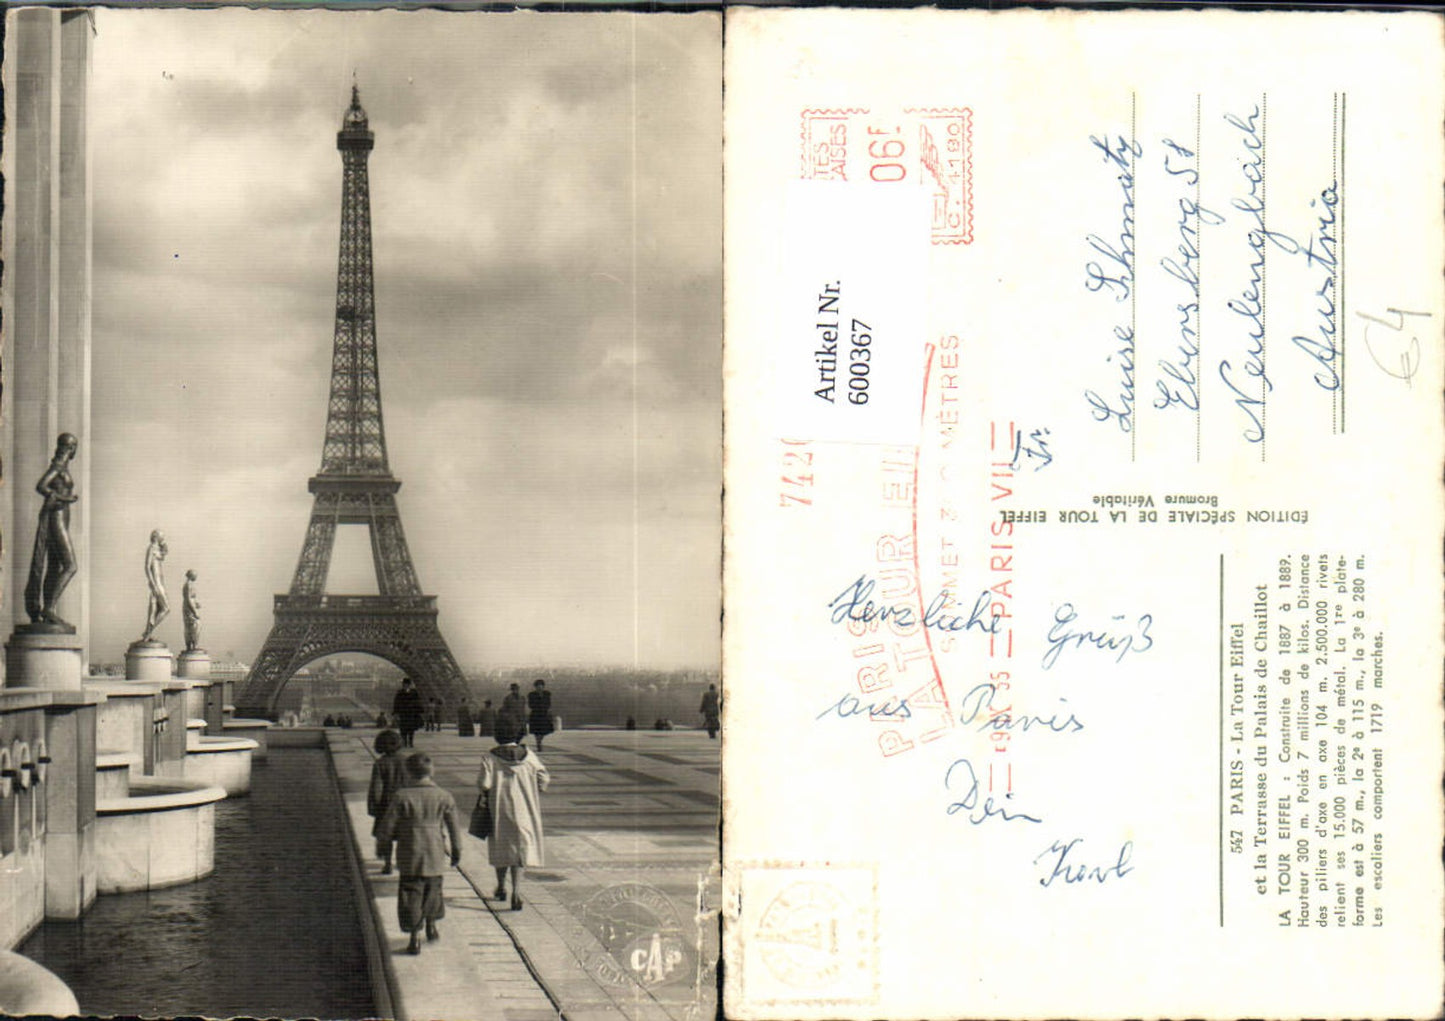 CAP
TES
AISES
06F
C. 4190
Artikel Nr.
600367
742
PARIS
LA TOUR EI
SOMMET 300 MÈTRES
PARIS VII
Fr.
Luise Schmatz
Ebersberg 51
Neulengbach
Austria
€4
ÉDITION SPÉCIALE DE LA TOUR EIFFEL
Bromure Véritable
Herzliche Grüß
aus Paris
Dein
Karl
547 PARIS - La Tour Eiffel
et la Terrasse du Palais de Chaillot
LA TOUR EIFFEL : Construite de 1887 à 1889.
Hauteur 300 m. Poids 7 millions de kilos. Distance
des piliers d'axe en axe 104 m. 2.500.000 rivets
relient ses 15.000 pièces de métal. La 1re plate-
forme est à 57 m., la 2e à 115 m., la 3e à 280 m.
Les escaliers comportent 1719 marches.